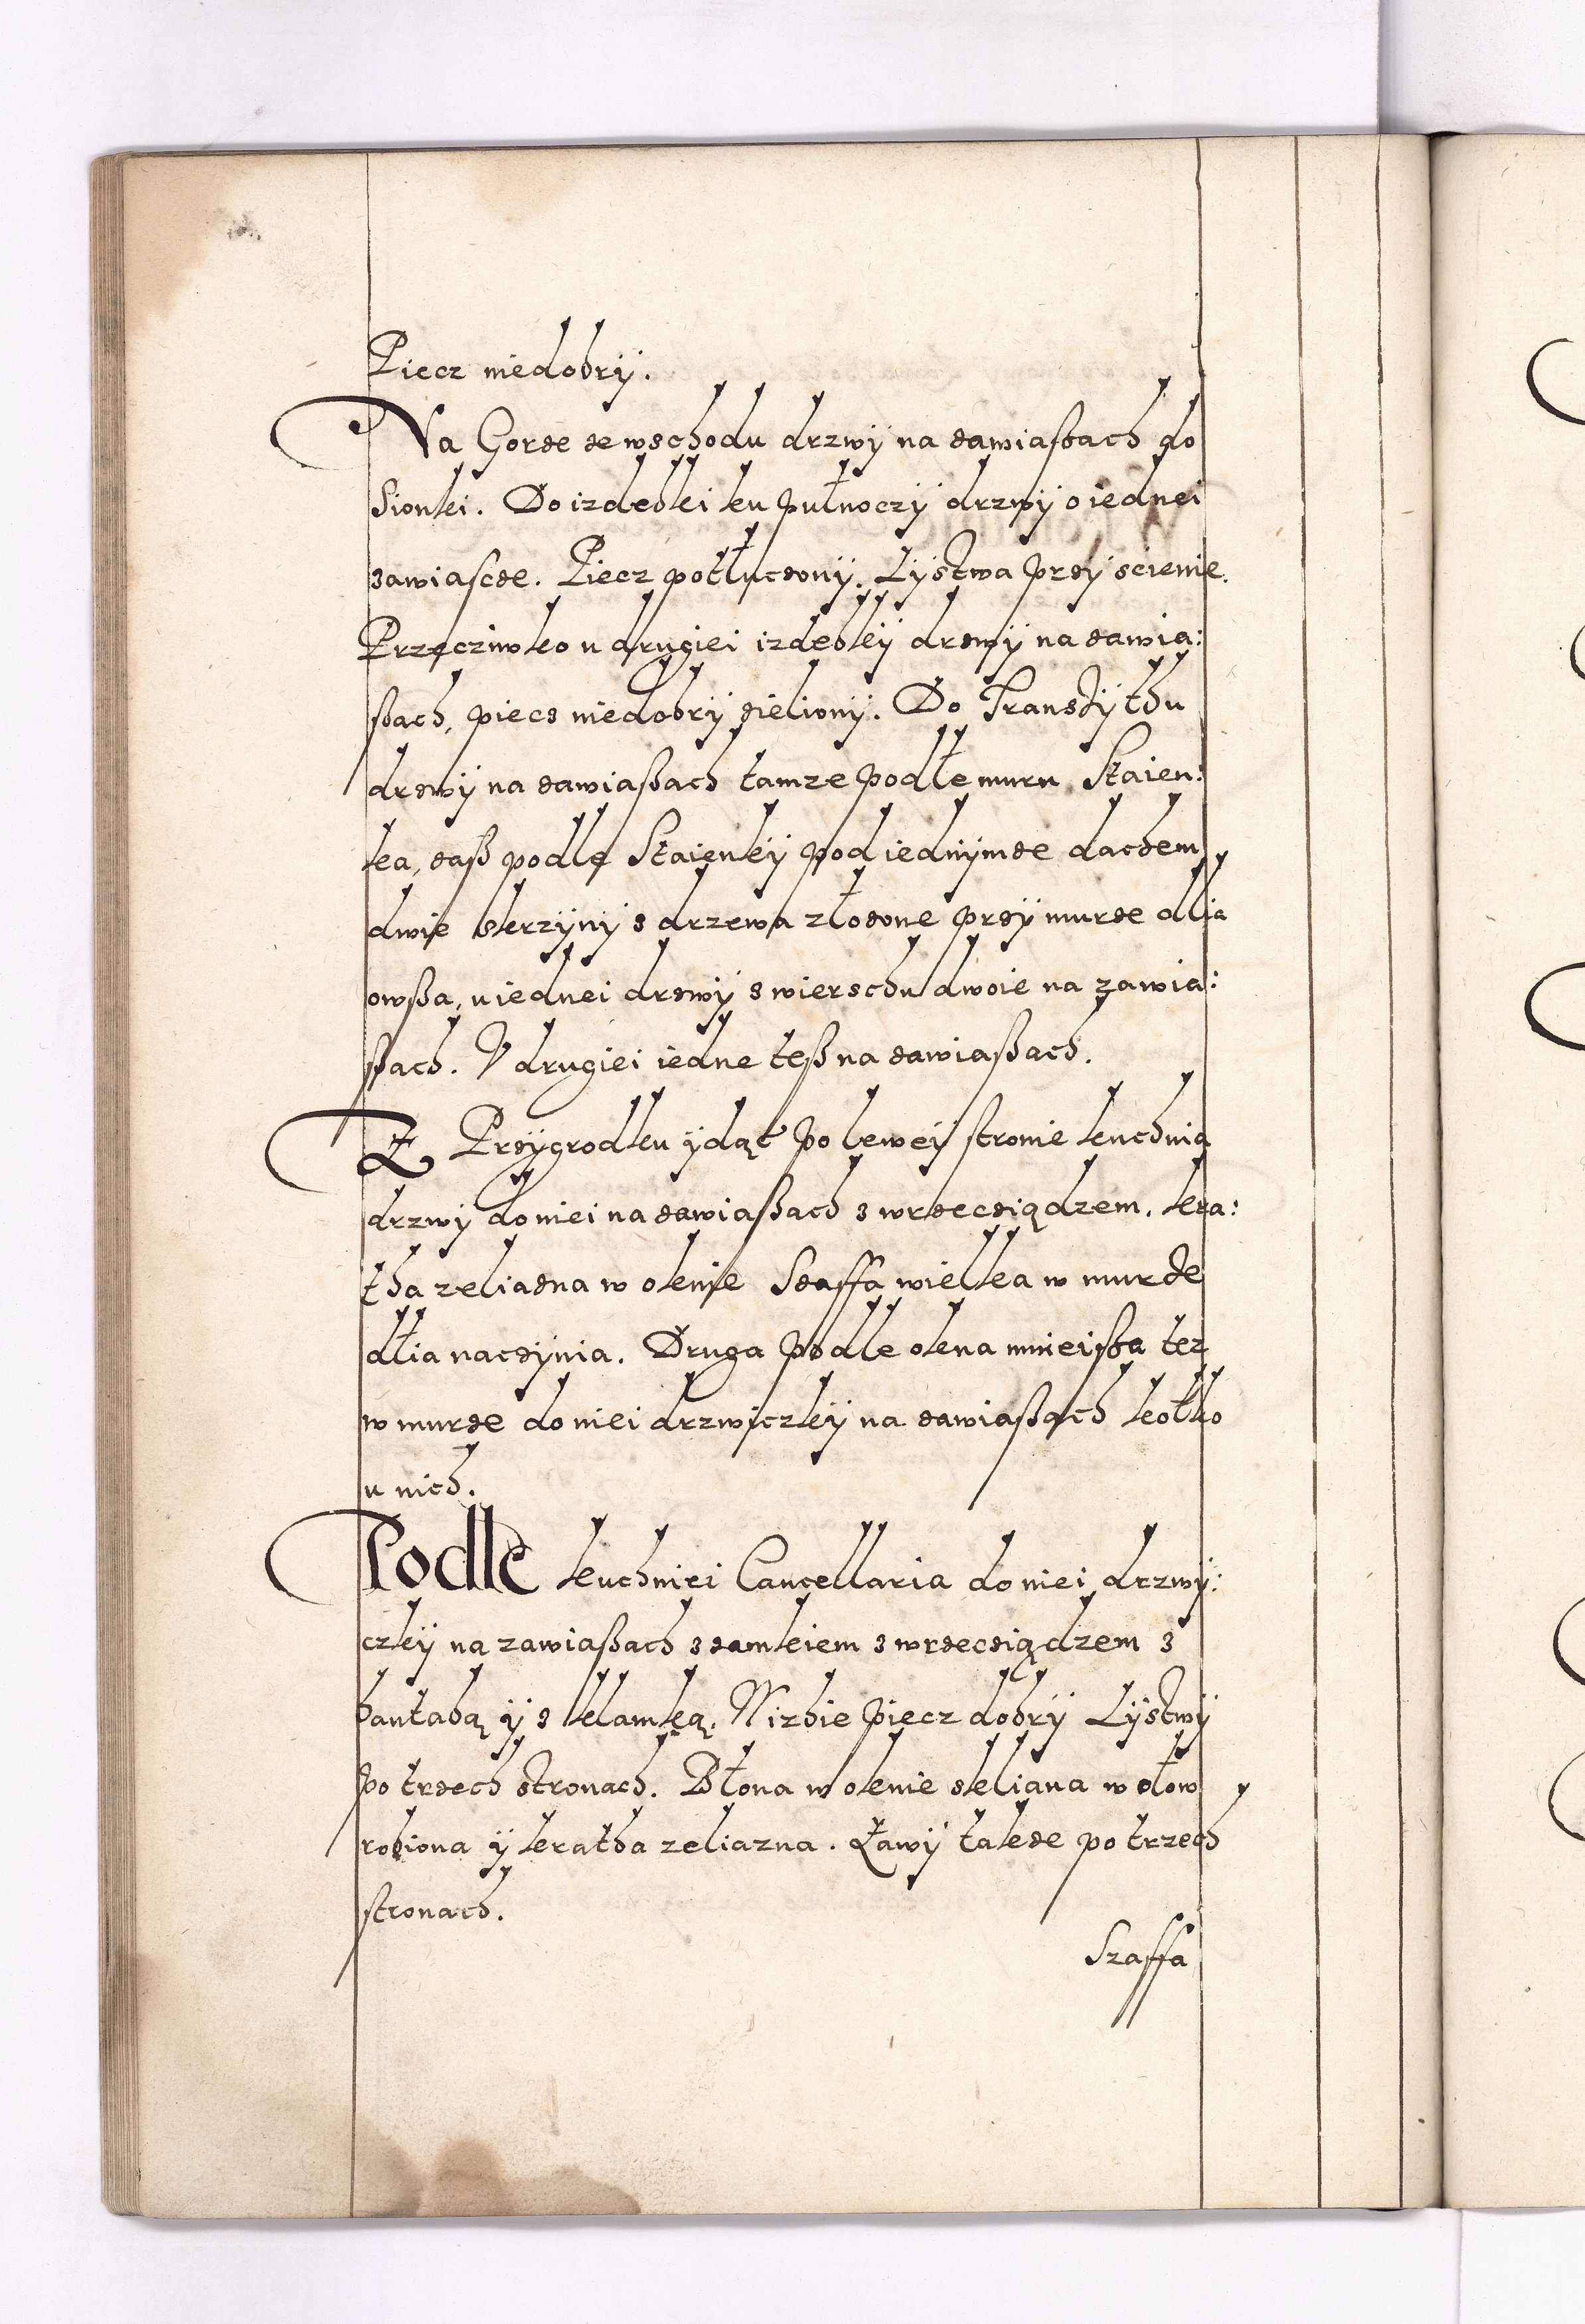 Piecz niedobrÿ.
Na Gorze ze wschodu drzwÿ na zawiaßach do
Sionki. Do izdebki ku pułnoczÿ drzwÿ o iednei
zawiascze. Piecz potłuczonÿ. Lÿstwa przÿ scienie.
Przeczÿwko u drugiei izdebkÿ drzwÿ na zawia:
ßach, piecz niedobrÿ zielionÿ. Do Transzÿthu
drzwÿ na zawiaßach tamze podłe muru Staien:
ka, zaß podle Staienkÿ pod iednÿmze dachem
dwie skrzÿnÿ z drzewa złozone przÿ murze dlia
owßa, u iednei drzwÿ z wierschu dwoie na zawia:
ßach. V drugiei iedne teß na zawiaßach.
Z Przÿgrodku ÿdąć po leweÿ stronie kuchnia
drzwÿ do niei na zawiaßach z wrzecziądzem. kra:
tha zeliazna w oknie Szaffa wielka w murze
dłia naczÿnia. Druga podle okna mnieißa tez
w murze do niei drzwiczkÿ na zawiaßach kołko
u nich.
Podle kuchniei Cancellaria do niei drzwÿ:
czkÿ na zawiaßach z zamkiem z wrzecziądzem z
hantabą ÿ z klamką. W izbie piecz dobrÿ Lÿstwÿ
po trzech stronach. Błona w oknie skliana w ołow
robiona ÿ kratha zeliazna. Ławÿ takze po trzech
stronach.
Szaffa